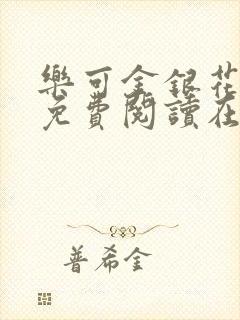 樂可金銀花
免費閱讀在
普希金